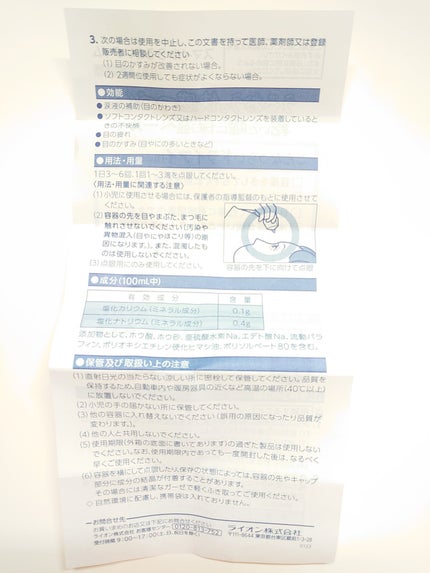 3. 次の場合は使用を中止し、この文書を持って医師、薬剤師又は登録
販売者に相談してください
(1) 目のかすみが改善されない場合。
(2) 2週間位使用しても症状がよくならない場合。
●効能
●涙液の補助(目のかわき)
●ソフトコンタクトレンズ又はハードコンタクトレンズを装着しているとき
の不快感
●目の疲れ
●目のかすみ(目やにの多いときなど)
●用法・用量
1日3~6回、1回1~3滴を点眼してください。
〈用法・用量に関連する注意〉
(1) 小児に使用させる場合には、保護者の指導監督のもとに使用させて
ください。
(2) 容器の先を目やまぶた、まつ毛に
触れさせないでください〔汚染や
異物混入(目やにやほこり等)の原
因になります。〕また、混濁したもの
は使用しないでください。
(3) 点眼用にのみ使用してください。
容器の先を下に向けて点眼
●成分(100mL中)
有効成分 含量
塩化カリウム(ミネラル成分) 0.1g
塩化ナトリウム(ミネラル成分) 0.4g
添加物として、ホウ酸、ホウ砂、亜硫酸水素Na、エデト酸Na、流動パラ
フィン、ポリオキシエチレン硬化ヒマシ油、ポリソルベート80を含む。
●保管及び取扱い上の注意
(1) 直射日光の当たらない涼しい所に密栓して保管してください。品質を
保持するため、自動車内や暖房器具の近くなど高温の場所(40℃以上)
に放置しないでください。
(2) 小児の手の届かない所に保管してください。
(3) 他の容器に入れ替えないでください(誤用の原因になったり品質が
変わります。)
(4) 他の人と共用しないでください。
(5) 使用期限(外箱の底面に書いてあります)の過ぎた製品は使用しない
でください。なお、使用期限内であっても一度開封した後は、なるべく
早くご使用ください。
(6) 容器を横にして点眼したり、保存の状態によっては、容器の先やキャップ
部分に成分の結晶が付着することがあります。
その場合には清潔なガーゼで軽くふき取ってご使用ください。
◇ 自然環境に配慮し、携帯袋は入れておりません。
お問合せ先
お買い求めのお店又は下記にお問合せください
ライオン株式会社 お客様センター 0120-813-752
受付時間 9:00~17:00(土、日、祝日を除く)
ライオン株式会社
〒111-8644 東京都台東区蔵前1-3-28